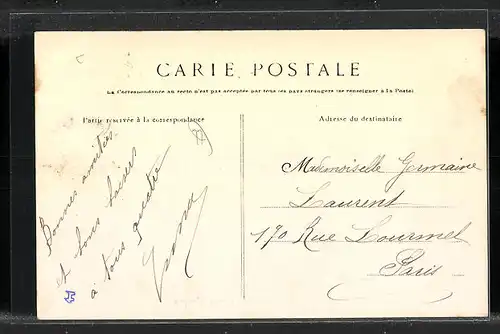 CARIE POSTALE
La Correspondance au recto n'est pas acceptée par tous les pays étrangers (se renseigner à la Poste)
Partie réservée à la correspondance
Adresse du destinataire
Bonnes amitiés
et bons baisers
à tous quatre
Mademoiselle Germaine
Laurent
170 Rue Lourmel
Paris